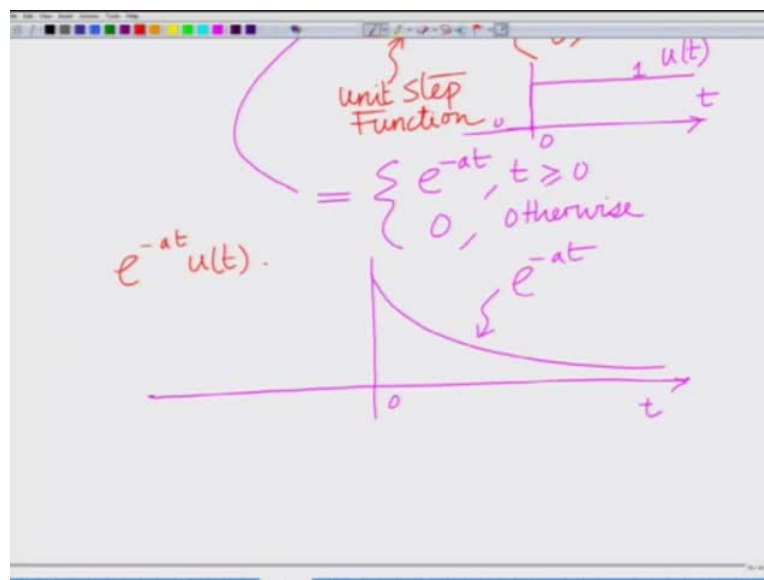 0,
1 u(t)
unit step
Function
0
t
0
= { e^{-at}, t ≥ 0
0, otherwise
e^{-at} u(t).
e^{-at}
0
t